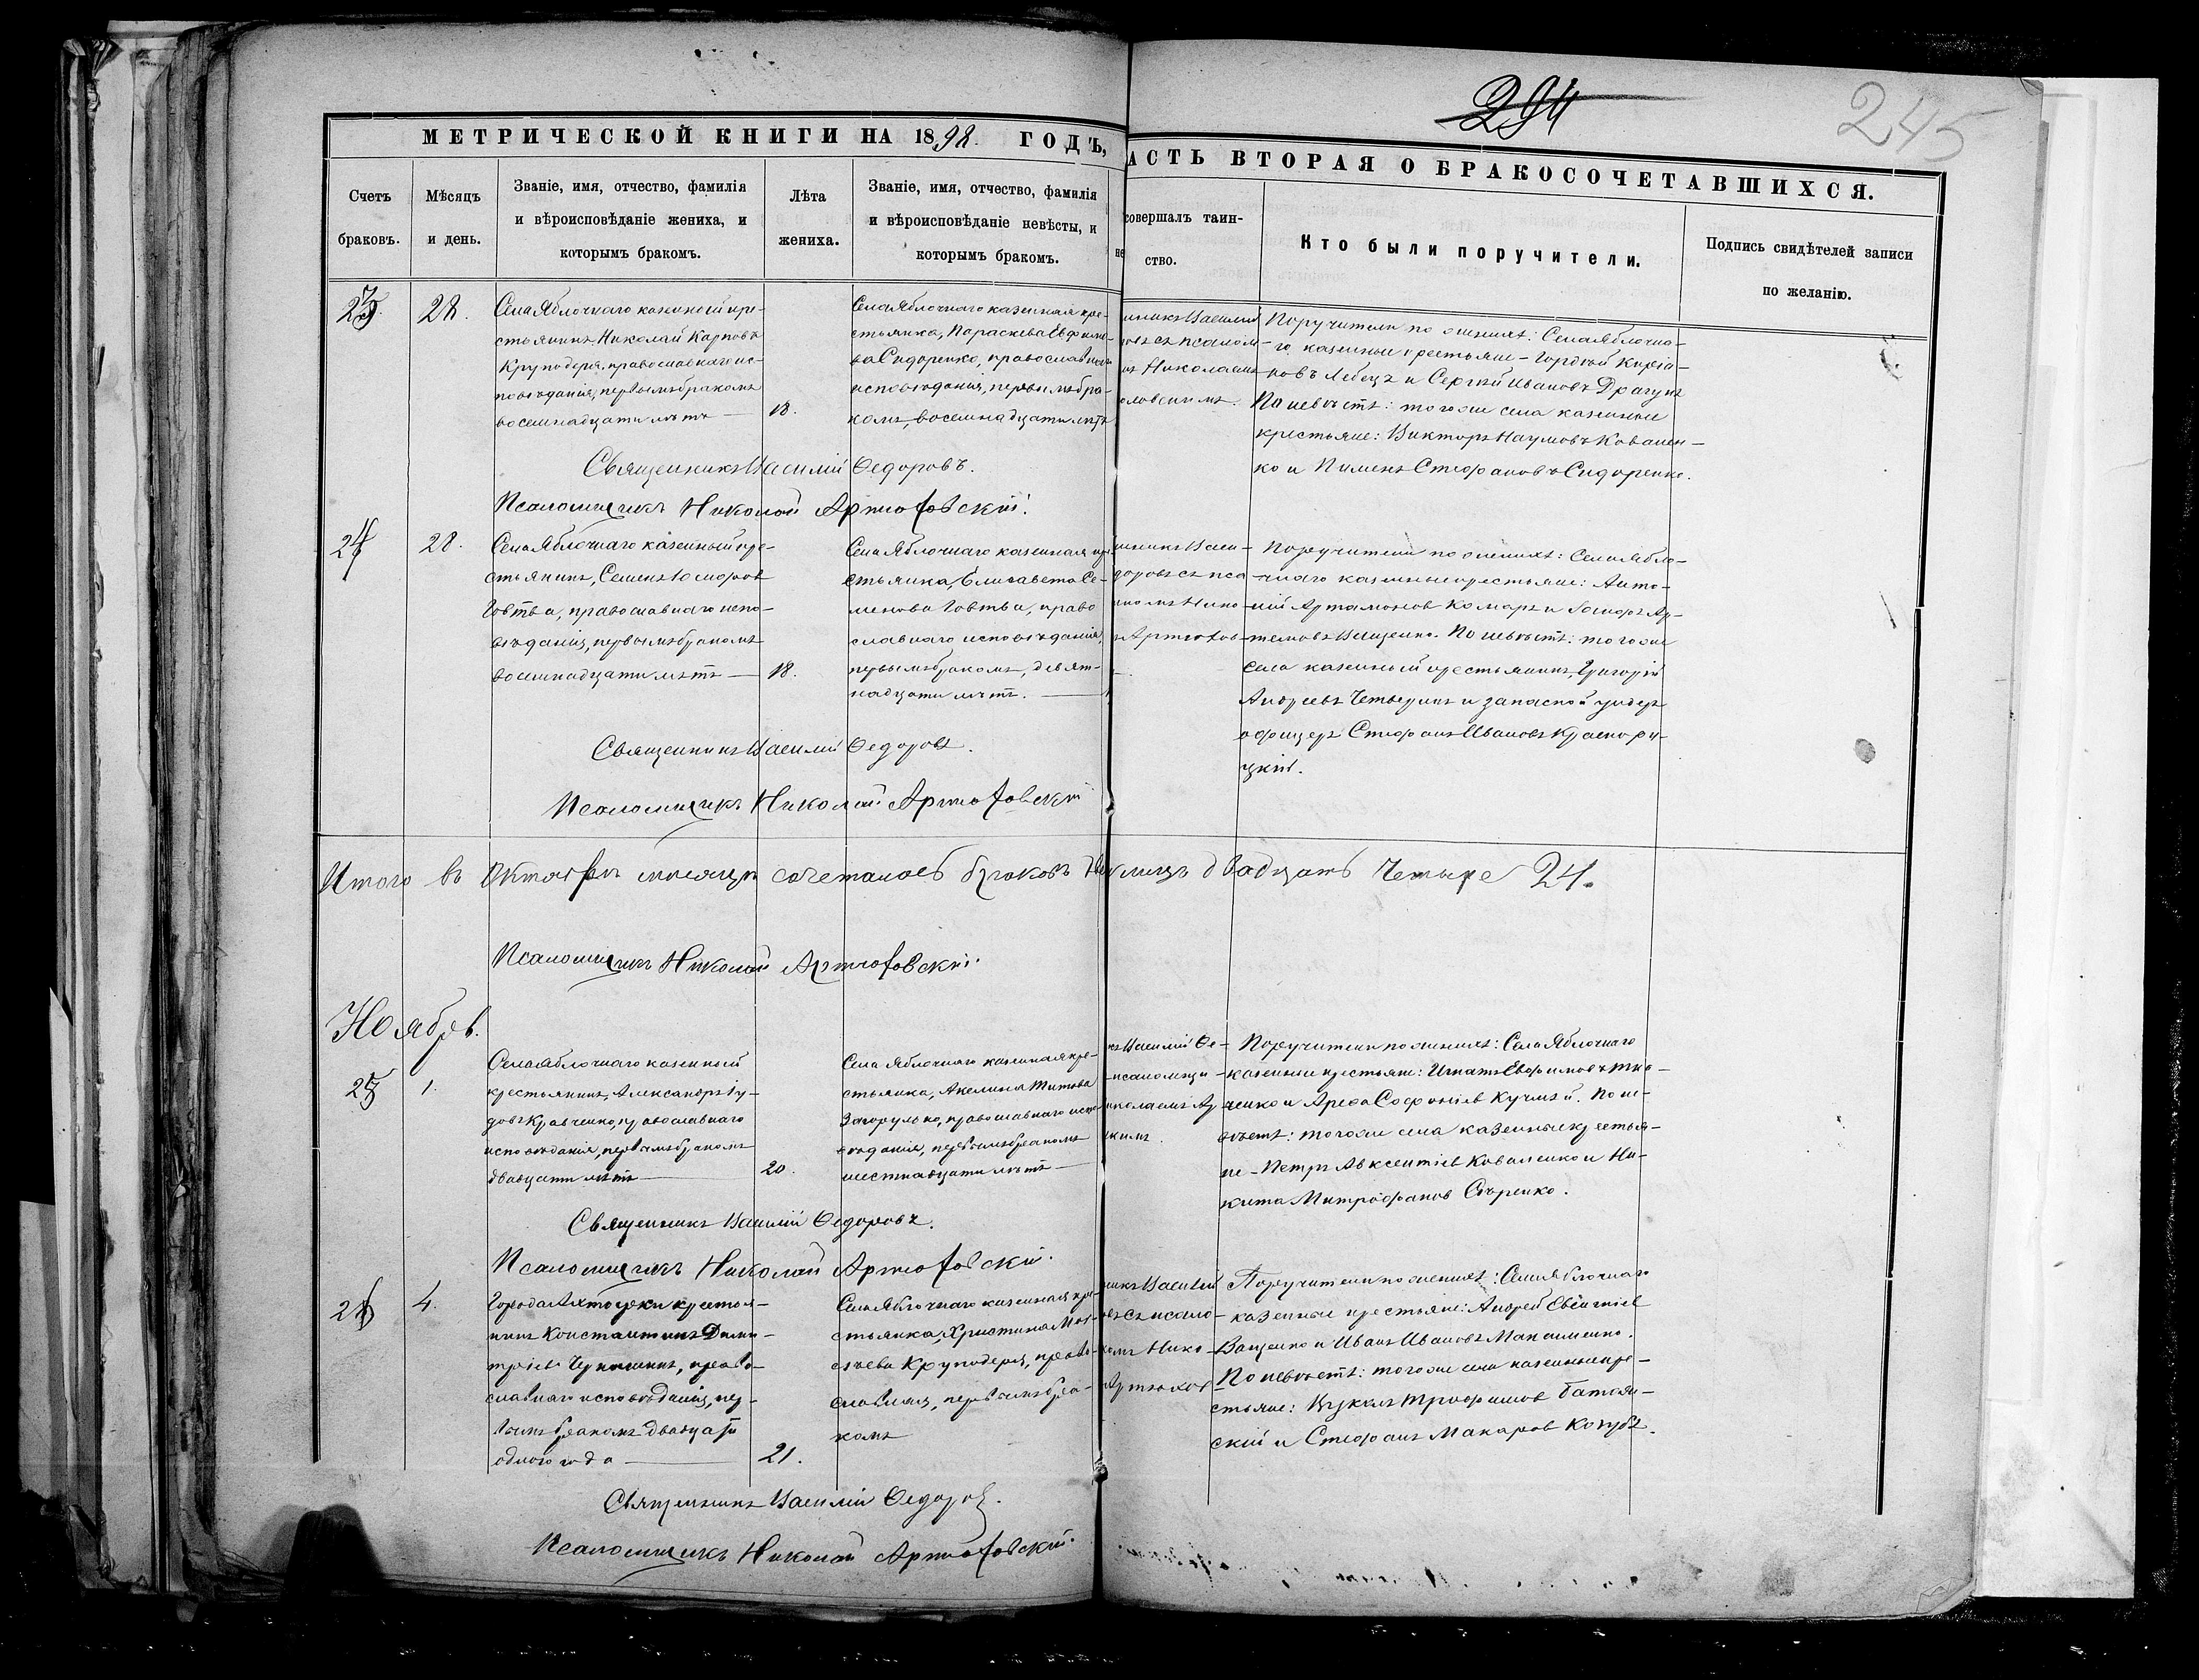 294
245
МЕТРИЧЕСКОЙ КНИГИ НА 1898. ГОДЪ,
АСТЬ ВТОРАЯ О БРАКОСОЧЕТАВШИХСЯ.
Счетъ
браковъ.
Мѣсяцъ
и день.
Званіе, имя, отчество, фамилія
и вѣроисповѣданіе жениха, и
которымъ бракомъ.
Лѣта
жениха.
Званіе, имя, отчество, фамилія
и вѣроисповѣданіе невѣсты, и
которымъ бракомъ.
совершалъ таин-
ство.
Кто были поручители.
Подпись свидѣтелей записи
по желанію.
23.
28.
Села Яблочнаго казенный кре-
стьянинъ Николай Карповъ
Круподеря, православнаго ис-
повѣданія, первымъ бракомъ
восемнадцати лѣтъ
18.
Села Яблочнаго казенная кре-
стьянка, Параскева Ефими-
ва Сидоренко, православнаго
исповѣданія, первымъ бра-
комъ, восемнадцати лѣтъ
никъ Василій
овъ съ псалом-
ъ Николаемъ
Поручители по женихѣ: Села Яблочна-
го казенные крестьяне - Гордѣй Киріа-
ковъ Лебецъ и Сергѣй Ивановъ Драгунъ
По невѣстѣ: того же села казенные
крестьяне: Викторъ Наумовъ Ковален-
ко и Пименъ Стефановъ Сидоренко.
Священникъ Василій Ѳедоровъ.
Псаломщикъ Николай Артюховскій.
24
28.
Села Яблочнаго казенный кре-
стьянинъ, Семенъ
Говтва, православнаго испо-
вѣданія, первымъ бракомъ
восемнадцати лѣтъ
18.
Села Яблочнаго казенная кре
стьянка, Елисавета Се-
менова Говтва, право
славнаго исповѣданія,
первымъ бракомъ, девят-
надцати лѣтъ.
никъ Васи-
доровъ съ пса
комъ Нико
Артюхов-
Поручители по женихѣ: Села Ябло-
чнаго казенные крестьяне: Анто-
ній Артамонов Комаръ и Іосифъ Ар-
темовъ Ищенко. По невѣстѣ: того же
села казенный крестьянинъ, Григорій
Андреевъ Четверикъ и запасной унтеръ
офицеръ Стефанъ Ивановъ Краснору-
цкій.
Священникъ Василій Ѳедоровъ.
Псаломщикъ Николай Артюховскій
Итого въ Октябрѣ мѣсяцѣ сочеталось браковъ двадцать четыре 24.
Псаломщикъ Николай Артюховскій.
Ноябрь.
25
1.
Села Яблочнаго казенный
крестьянинъ, Александръ Іу-
довъ Кравченко, православнаго
исповѣданія, первымъ бракомъ
двадцати лѣтъ
20.
Села Яблочнаго казенная кре-
стьянка, Акелина Титова
Загорулько, православнаго испо-
вѣданія, первымъ бракомъ
шестнадцати лѣтъ
къ Василій Ѳе-
псаломщи-
иколаемъ Ар
скимъ.
Поручители по женихѣ: Села Яблочнаго
казенные крестьяне: Игнатъ Евфимовъ Тка-
ченко и Арефа Софоніевъ Кучмій. По не-
вѣстѣ: того же села казенные крестья-
не - Петръ Авксентіев Коваленко и Ни-
кита Митрофанов Сѣренко.
Священникъ Василій Ѳедоровъ.
Псаломщикъ Николай Артюховскій.
26
4.
Города Ахтырки крестья-
нинъ Константинъ Дими-
тріевъ Чукишинъ, право-
славнаго исповѣданія, пер-
вымъ бракомъ двадцати
одного года
21.
Села Яблочнаго казенная кре-
стьянка, Христина Мат-
ѳѣева Круподеря, право-
славная, первымъ бра-
комъ
никъ Василій
овъ съ псало-
комъ Нико-
Артюхов
Поручители по женихѣ: Села Яблочнаго
казенные крестьяне: Андрей Евѳимиев
Ващенко и Иванъ Ивановъ Максименко.
По невѣстѣ: того же села казенные кре-
стьяне: Лука Трофимов Батож-
скій и Стефанъ Макаров Когубъ.
Священникъ Василій Ѳедоровъ.
Псаломщикъ Николай Артюховскій.